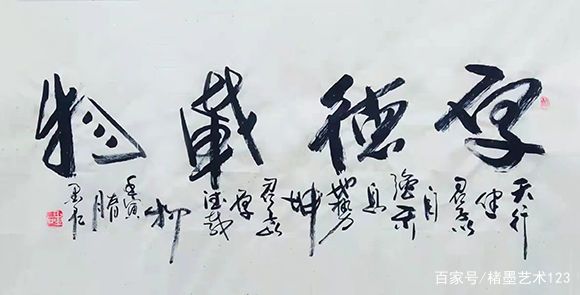 厚德載物
天行
健
君子以
自
强不
息
地势
坤
君子以
厚
德载
物
壬寅
腊
百家号/楮墨艺术123